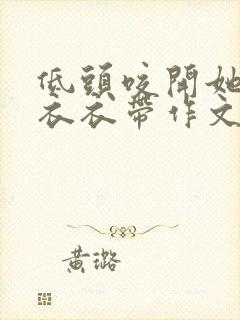 低頭咬開她
衣衣帶作文
黃璐